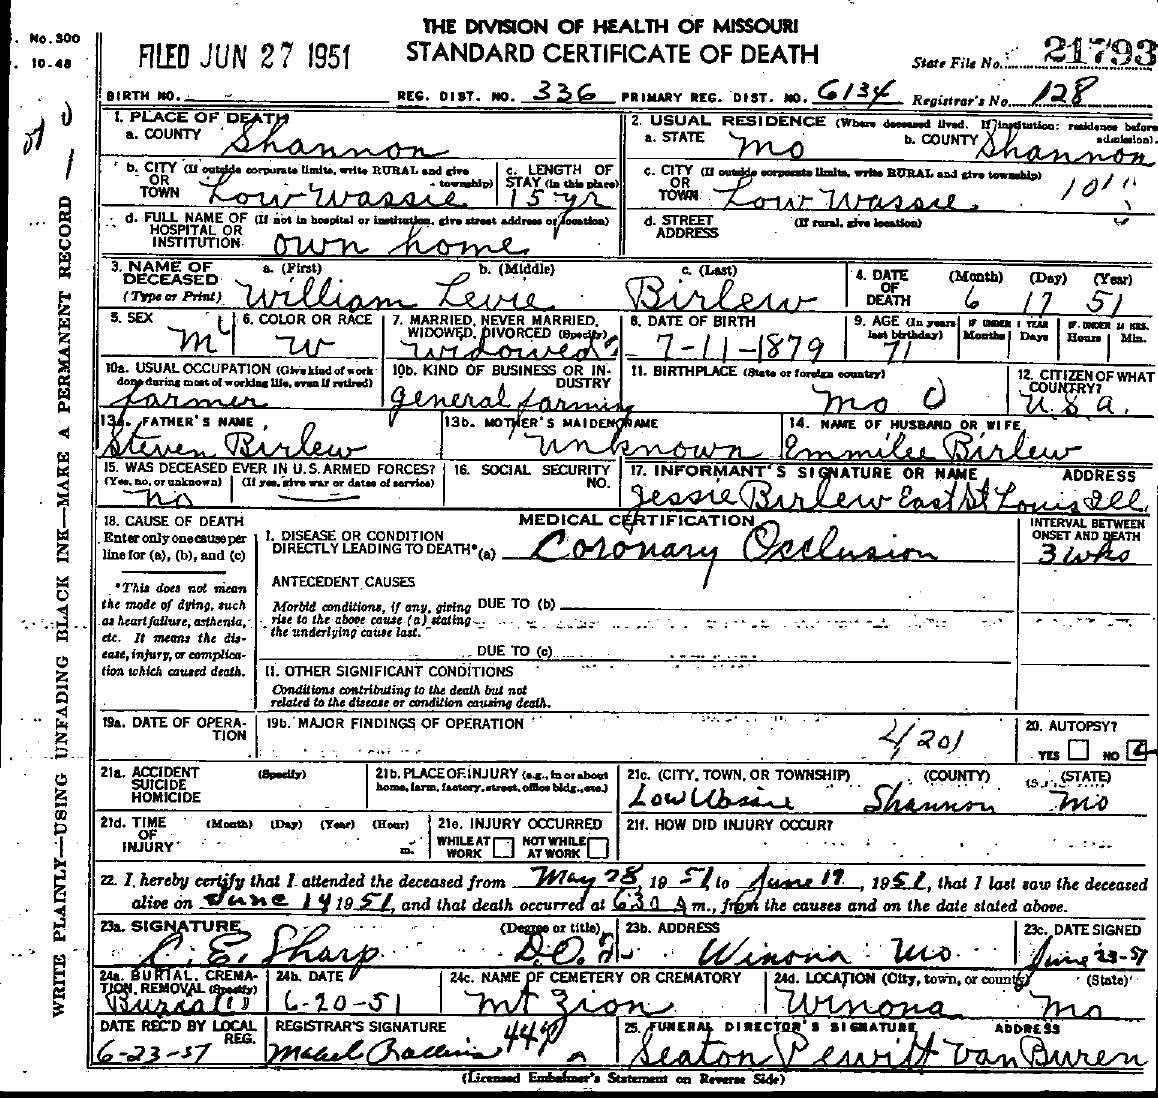 THE DIVISION OF HEALTH OF MISSOURI
STANDARD CERTIFICATE OF DEATH
No. 300
10-48
FILED JUN 27 1951
State File No. 21793
BIRTH NO. REG. DIST. NO. 336 PRIMARY REG. DIST. NO. 6134 Registrar's No. 128
1. PLACE OF DEATH
a. COUNTY Shannon
2. USUAL RESIDENCE (Where deceased lived. If institution: residence before admission).
a. STATE Mo b. COUNTY Shannon
b. CITY (If outside corporate limits, write RURAL and give township)
OR
TOWN Low Wassie
c. LENGTH OF
STAY (in this place)
15 yr
c. CITY (If outside corporate limits, write RURAL and give township)
OR
TOWN Low Wassie
d. FULL NAME OF (If not in hospital or institution, give street address or location)
HOSPITAL OR
INSTITUTION own home
d. STREET (If rural, give location)
ADDRESS
3. NAME OF DECEASED (Type or Print)
a. (First) b. (Middle) c. (Last)
William Levie Birlew
4. DATE OF DEATH (Month) (Day) (Year)
6 17 51
5. SEX M
6. COLOR OR RACE W
7. MARRIED, NEVER MARRIED, WIDOWED, DIVORCED (Specify)
Widowed
8. DATE OF BIRTH
7-11-1879
9. AGE (In years last birthday) 71
IF UNDER 1 YEAR Months Days
IF UNDER 24 HRS. Hours Min.
10a. USUAL OCCUPATION (Give kind of work done during most of working life, even if retired)
farmer
10b. KIND OF BUSINESS OR INDUSTRY
general farming
11. BIRTHPLACE (State or foreign country)
Mo
12. CITIZEN OF WHAT COUNTRY?
U.S.A.
13a. FATHER'S NAME
Steven Birlew
13b. MOTHER'S MAIDEN NAME
unknown
14. NAME OF HUSBAND OR WIFE
Emmilee Birlew
15. WAS DECEASED EVER IN U.S. ARMED FORCES?
(Yes, no, or unknown) (If yes, give war or dates of service)
no
16. SOCIAL SECURITY NO.
17. INFORMANT'S SIGNATURE OR NAME ADDRESS
Jessie Birlew East St Louis Ill
18. CAUSE OF DEATH
Enter only one cause per line for (a), (b), and (c)
*This does not mean the mode of dying, such as heart failure, asthenia, etc. It means the disease, injury, or complication which caused death.
MEDICAL CERTIFICATION
I. DISEASE OR CONDITION
DIRECTLY LEADING TO DEATH* (a) Coronary Occlusion
INTERVAL BETWEEN ONSET AND DEATH
3 wks
ANTECEDENT CAUSES
Morbid conditions, if any, giving rise to the above cause (a) stating the underlying cause last.
DUE TO (b)
DUE TO (c)
II. OTHER SIGNIFICANT CONDITIONS
Conditions contributing to the death but not related to the disease or condition causing death.
19a. DATE OF OPERATION
19b. MAJOR FINDINGS OF OPERATION
4201
20. AUTOPSY?
YES NO
21a. ACCIDENT (Specify)
SUICIDE
HOMICIDE
21b. PLACE OF INJURY (e.g., in or about home, farm, factory, street, office bldg., etc.)
21c. (CITY, TOWN, OR TOWNSHIP) (COUNTY) (STATE)
Low Wassie Shannon Mo
21d. TIME OF INJURY (Month) (Day) (Year) (Hour) m.
21e. INJURY OCCURRED
WHILE AT WORK NOT WHILE AT WORK
21f. HOW DID INJURY OCCUR?
22. I hereby certify that I attended the deceased from May 28, 1951, to June 17, 1951, that I last saw the deceased
alive on June 14 1951, and that death occurred at 630 A m., from the causes and on the date stated above.
23a. SIGNATURE (Degree or title)
C. E. Sharp D.O.
23b. ADDRESS
Winona Mo.
23c. DATE SIGNED
June 23-51
24a. BURIAL, CREMATION, REMOVAL (Specify)
Burial
24b. DATE
6-20-51
24c. NAME OF CEMETERY OR CREMATORY
Mt Zion
24d. LOCATION (City, town, or county) (State)
Winona Mo
DATE REC'D BY LOCAL REG.
6-23-51
REGISTRAR'S SIGNATURE
Mabel
25. FUNERAL DIRECTOR'S SIGNATURE ADDRESS
Seaton Pewitt Van Buren
(Licensed Embalmer's Statement on Reverse Side)
WRITE PLAINLY—USING UNFADING BLACK INK—MAKE A PERMANENT RECORD